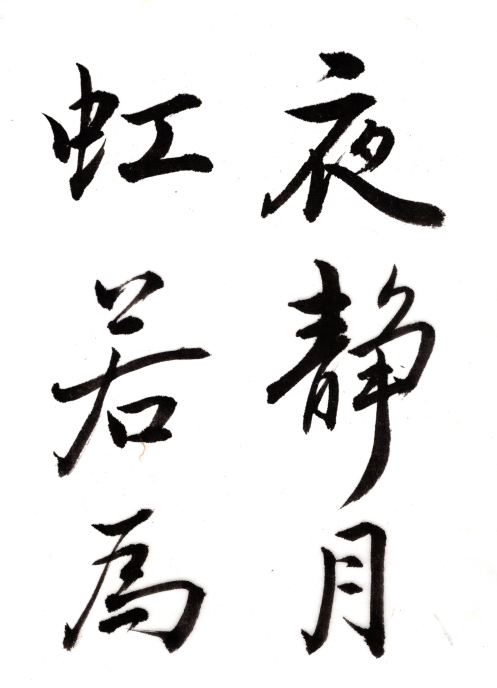 夜静月
虹若為